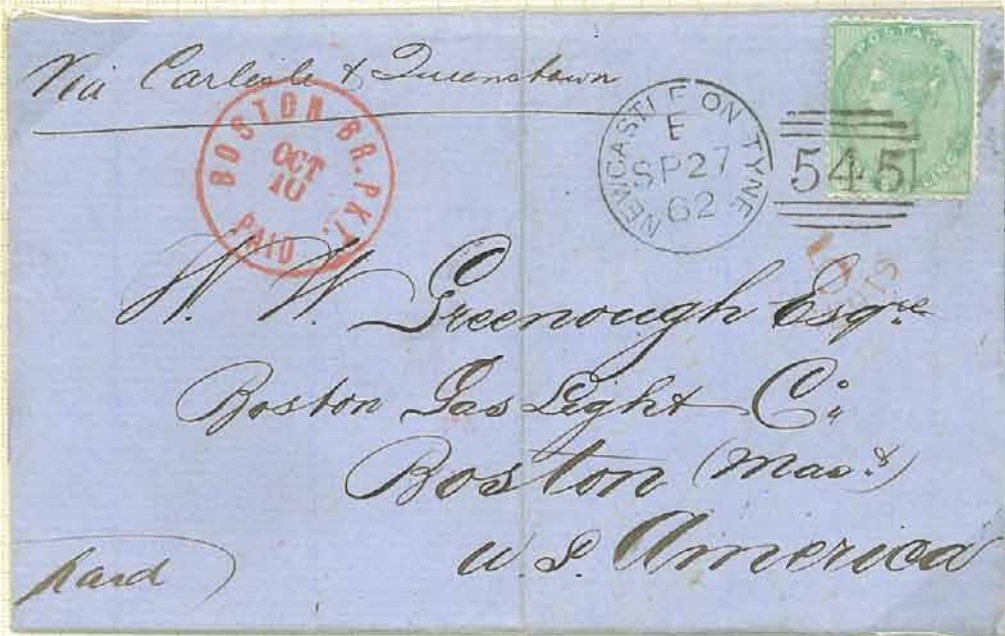 Via Carlisle & Queenstown
BOSTON BR. PKT.
OCT
10
PAID
NEWCASTLE ON TYNE
E
SP 27
62
545
POSTAGE
W. W. Greenough Esqre
Boston Gas Light Co
Boston (Mass)
U.S. America
Paid